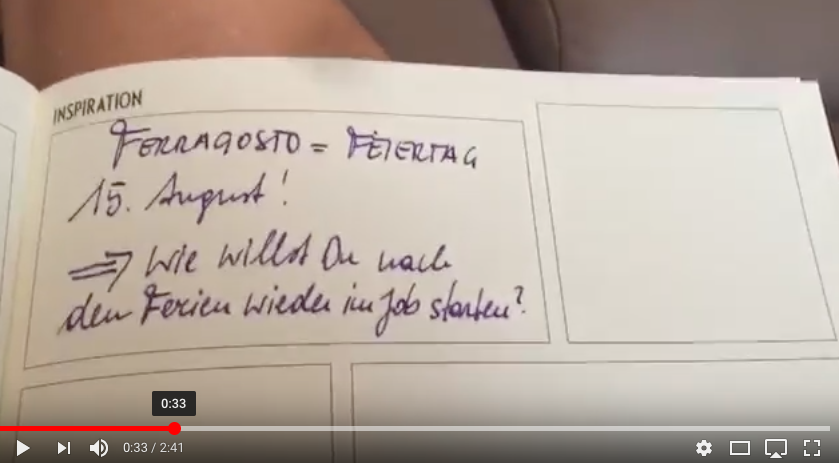 INSPIRATION
FERRAGOSTO = FEIERTAG
15. August!
⇒ Wie willst Du nach
den Ferien wieder im Job starten?
0:33
0:33 / 2:41